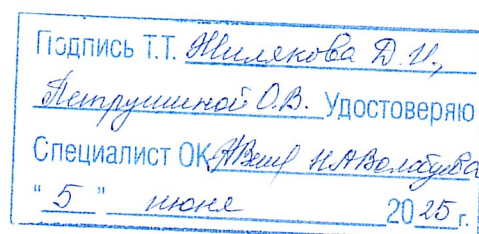 Подпись Т.Т. Жилякова Д.И.,
Петрушиной О.В. Удостоверяю
Специалист ОК Н.А.Волобуева
"5" июня 2025 г.